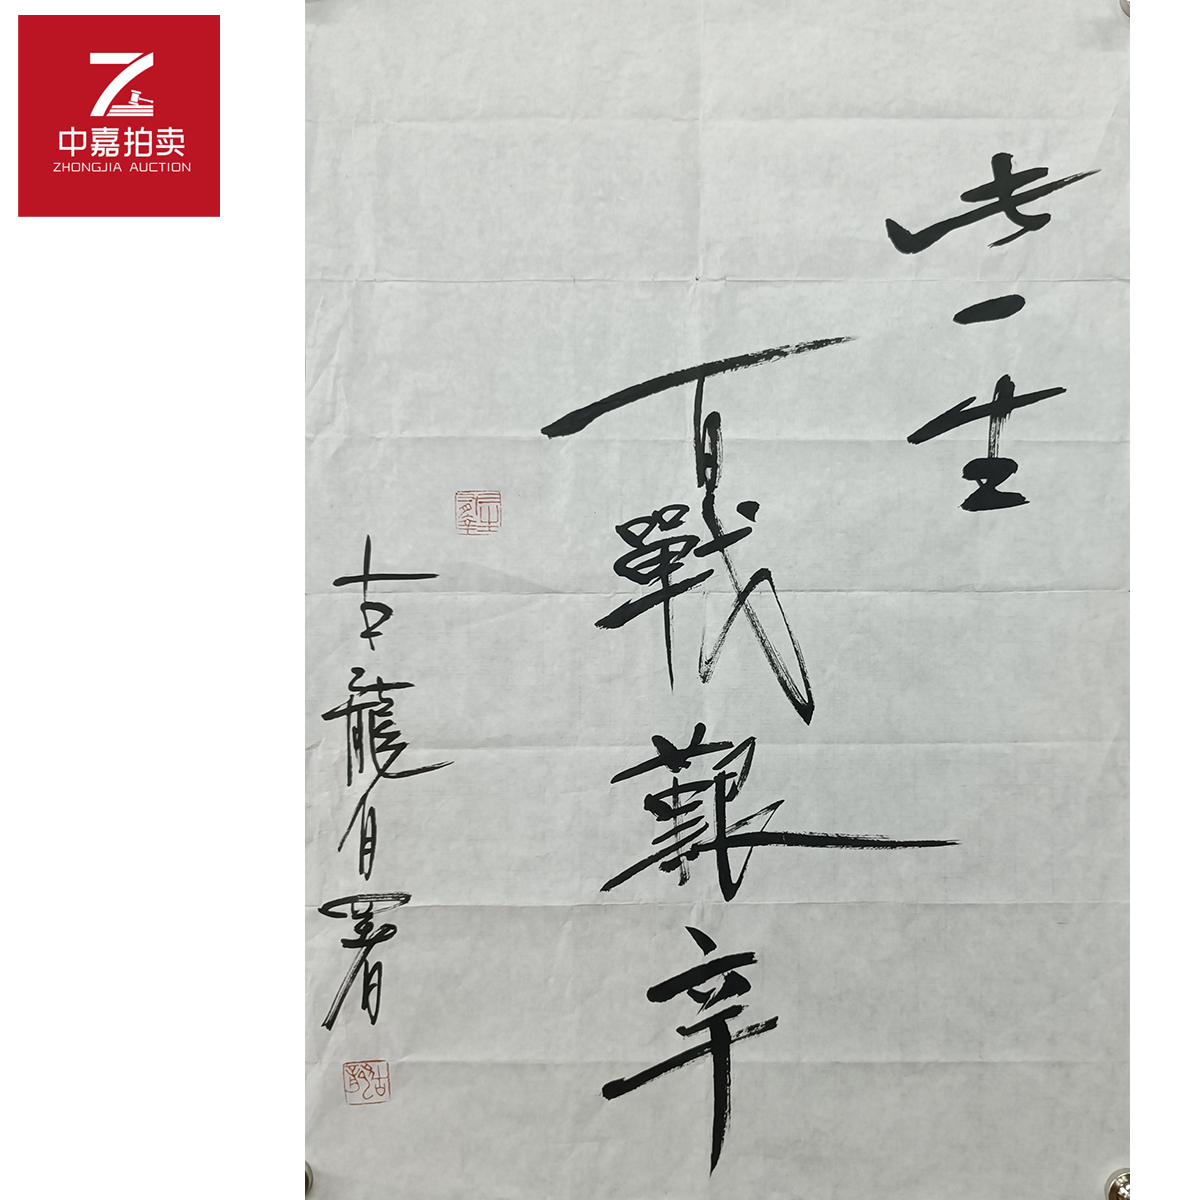 中嘉拍卖
ZHONGJIA AUCTION
此一生
百戰艱辛
古龍自署